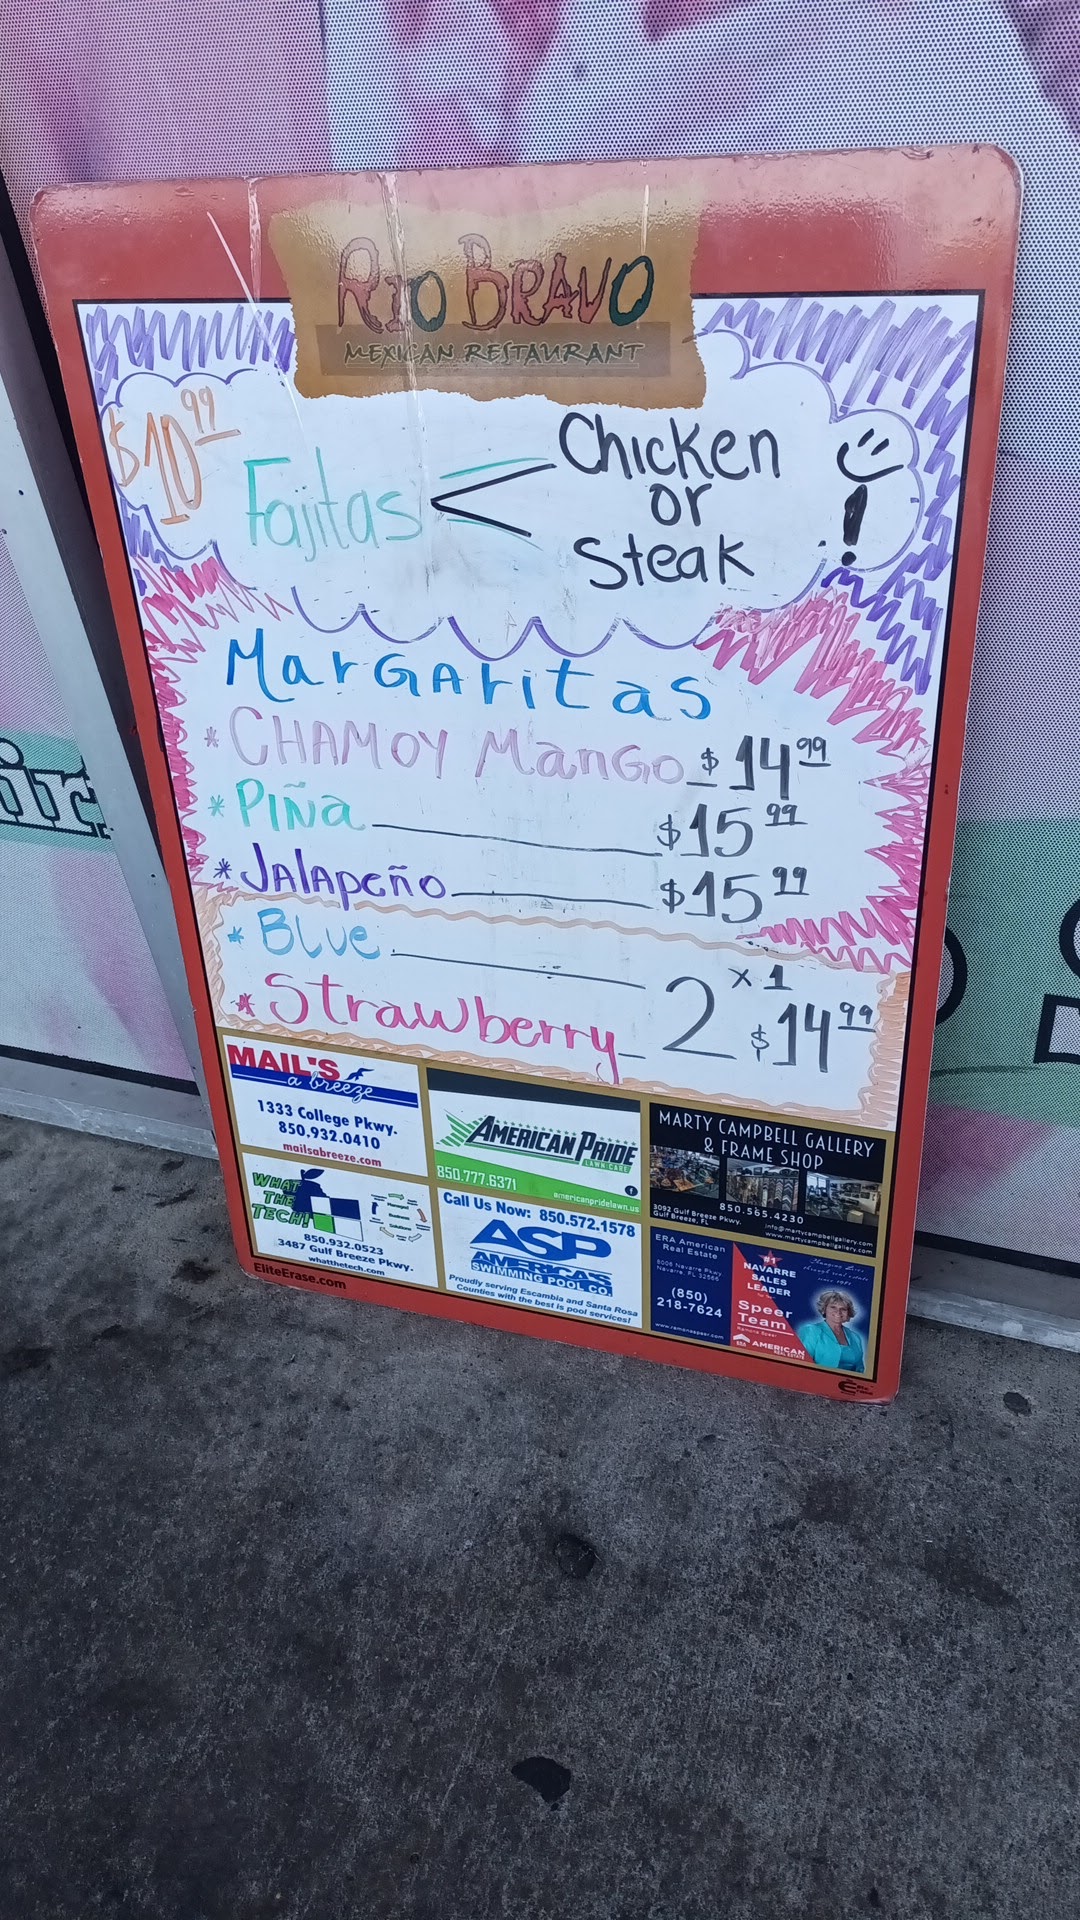 RIO BRAVO
MEXICAN RESTAURANT
$10.99
Fajitas
Chicken
or
Steak
!
MarGAritas
* CHAMOY MANGO $14.99
* PIÑA $15.99
* JALApeÑo $15.99
* BLUe
* Strawberry 2 x 1 $14.99
MAIL'S
a breeze
1333 College Pkwy.
850.932.0410
mailsabreeze.com
AMERICAN PRIDE
LAWN CARE
850.777.6371
americanpridelawn.us
MARTY CAMPBELL GALLERY
& FRAME SHOP
850.565.4230
3092 Gulf Breeze Pkwy.
Gulf Breeze, FL
info@martycampbellgallery.com
www.martycampbellgallery.com
WHAT
THE
TECH!
850.932.0523
3487 Gulf Breeze Pkwy.
whatthetech.com
Call Us Now: 850.572.1578
ASP
AMERICA'S
SWIMMING POOL CO.
Proudly serving Escambia and Santa Rosa
Counties with the best is pool services!
ERA American
Real Estate
8006 Navarre Pkwy
Navarre, FL 32566
(850)
218-7624
www.ramonaspeer.com
#1
NAVARRE
SALES
LEADER
Speer
Team
Ramona Speer
ERA
AMERICAN
REAL ESTATE
EliteErase.com